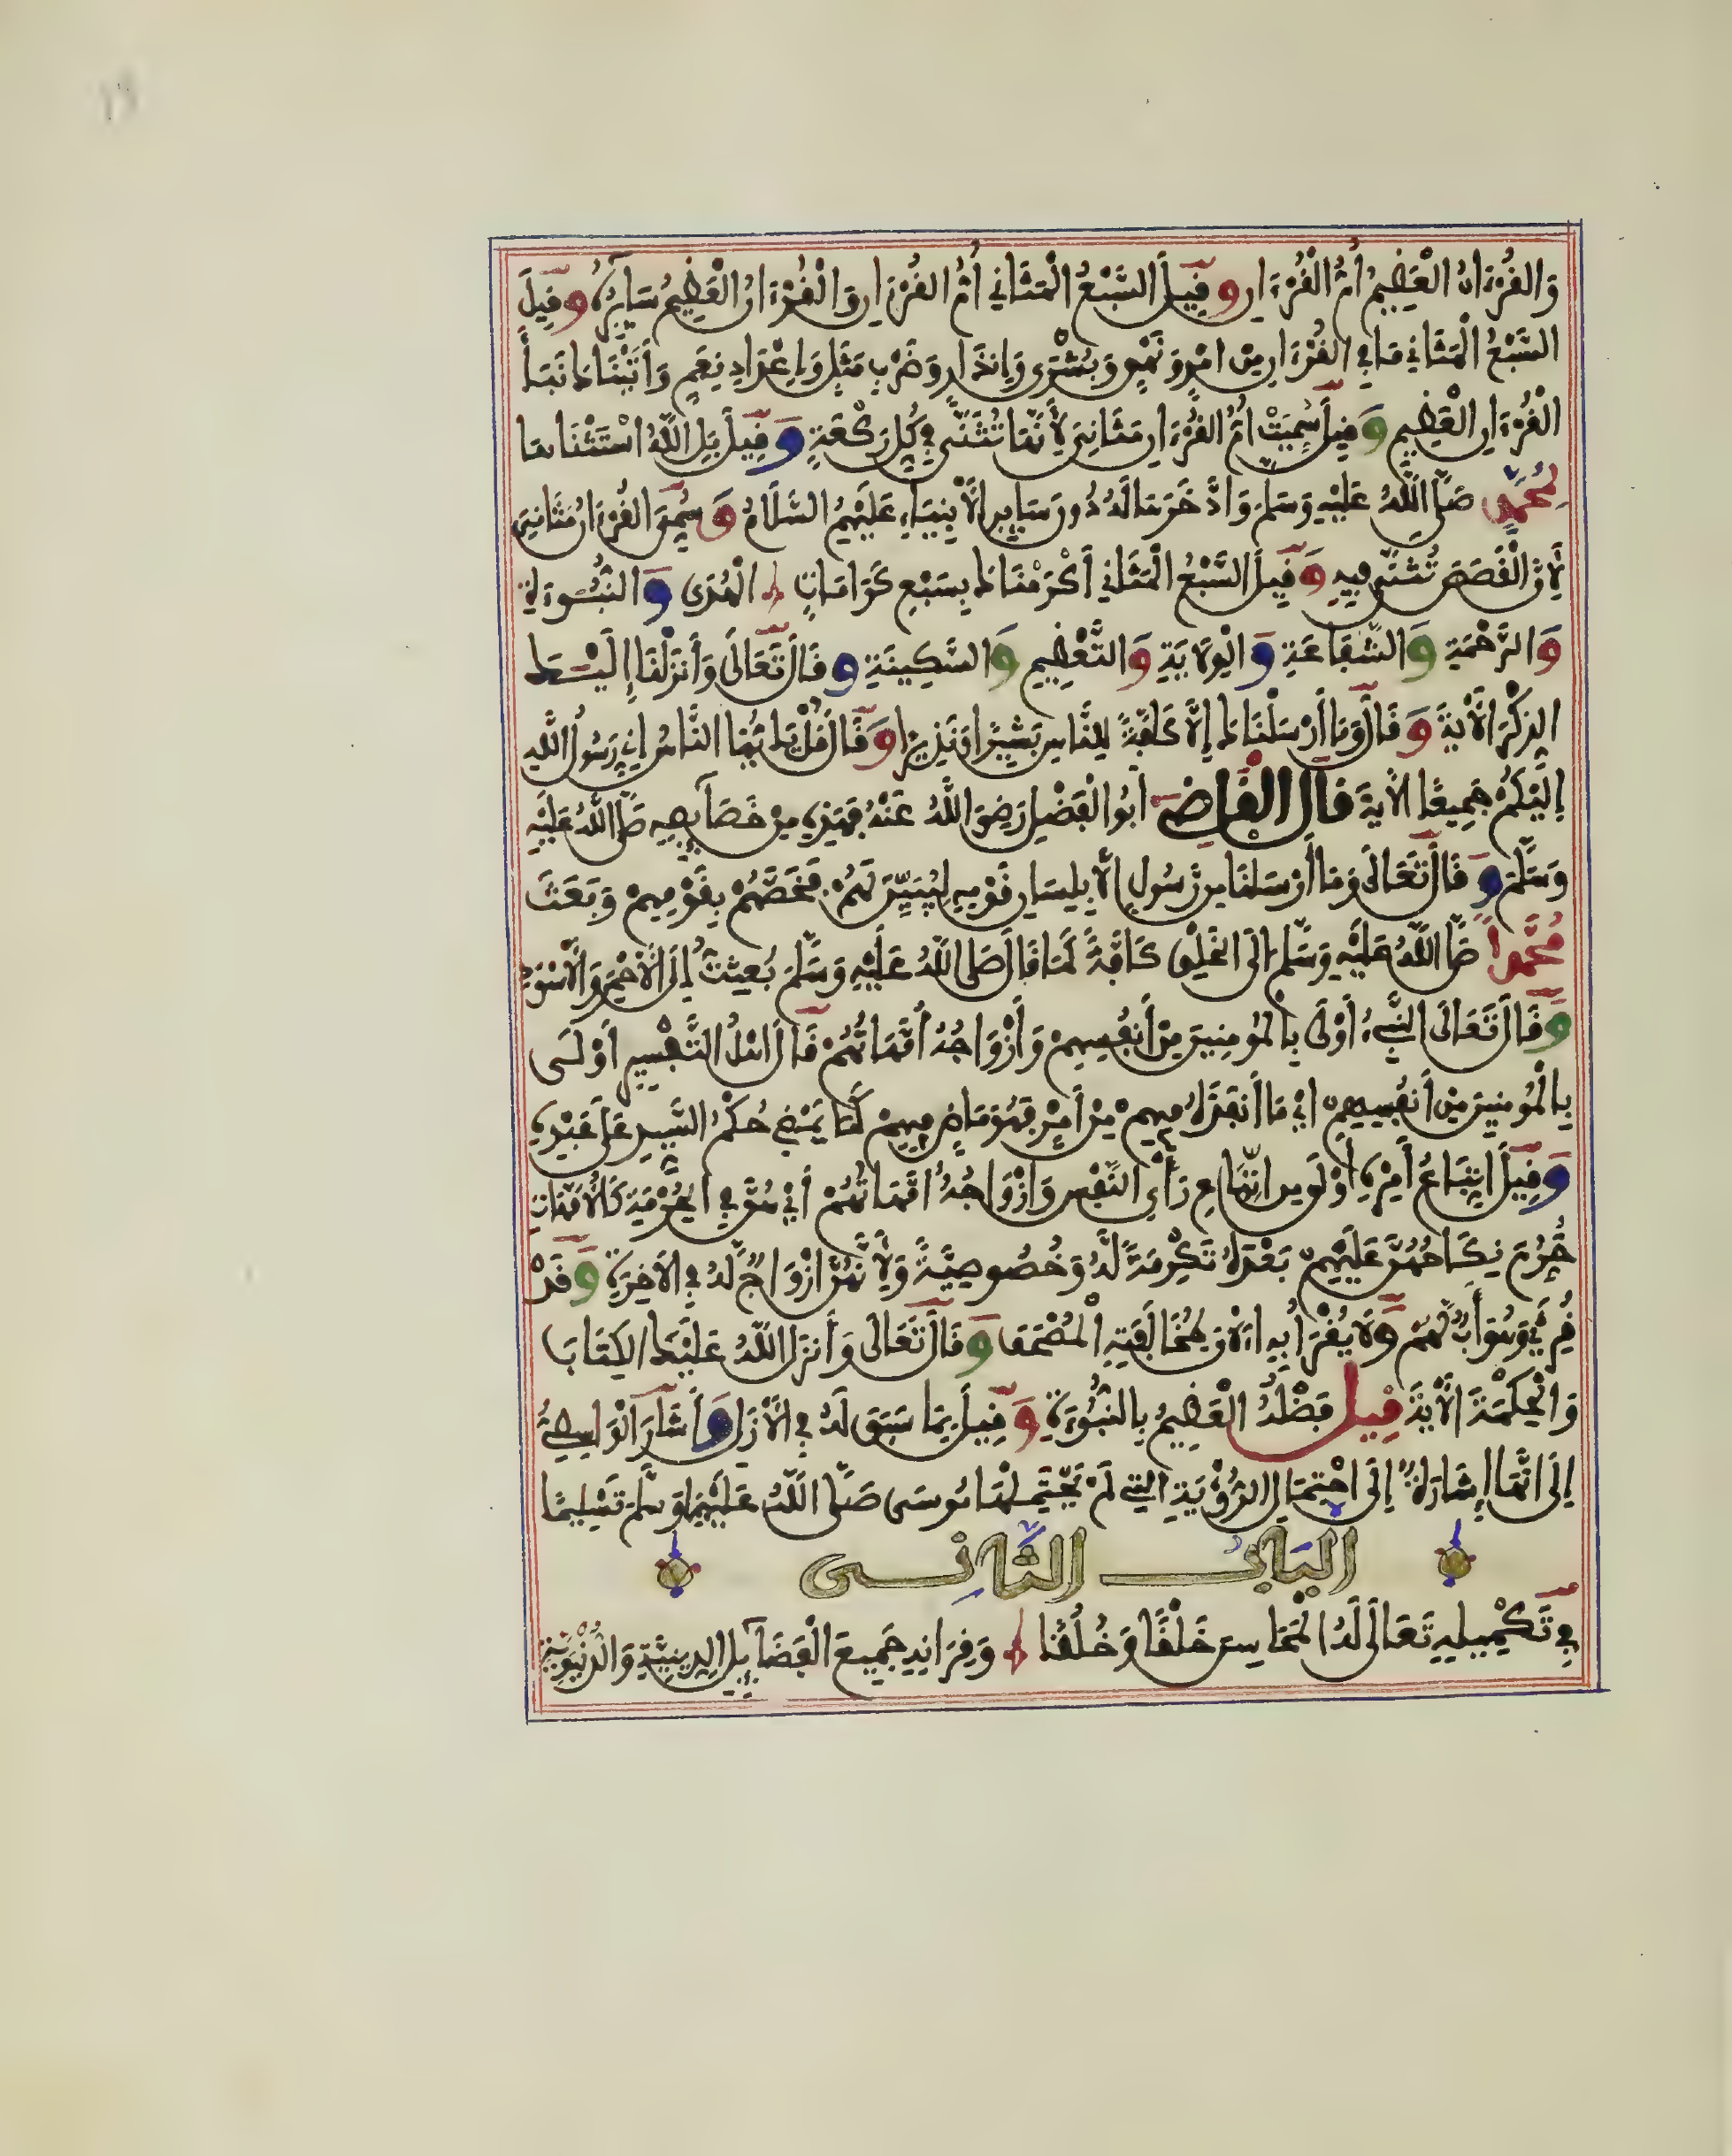 وَالْقُرْءَانُ الْعَظِيمُ أُمُّ الْقُرْءَانِ وَقِيلَ السَّبْعُ الْمَثَانِي أُمُّ الْقُرْءَانِ وَالْقُرْءَانُ الْعَظِيمُ سَايِرُهُ وَقِيلَ
السَّبْعُ الْمَثَانِي مَا فِي الْقُرْءَانِ مِنْ امْرٍ وَنَهْيٍ وَبُشْرَى وَإِنذَارٍ وَضَرْبِ مَثَلٍ وَإِعْدَادِ نِعَمٍ وَآتَيْنَاكَ نَبَأَ
الْقُرْءَانِ الْعَظِيمِ وَقِيلَ سُمِّيَتْ أُمُّ الْقُرْءَانِ مَثَانِيَ لِأَنَّهَا تُثَنَّى فِي كُلِّ رَكْعَةٍ وَقِيلَ بَلِ اللَّهُ اسْتَثْنَاهَا
لِمُحَمَّدٍ صَلَّى اللَّهُ عَلَيْهِ وَسَلَّمَ وَادَّخَرَهَا لَهُ دُونَ سَايِرِ الْأَنْبِيَاءِ عَلَيْهِمُ السَّلَامُ وَسُمِّيَ الْقُرْءَانُ مَثَانِيَ
لِأَنَّ الْقَصَصَ تُثَنَّى فِيهِ وَقِيلَ السَّبْعُ الْمَثَانِي أَكْرَمْنَاكَ بِسَبْعِ كَرَامَاتٍ الْهُدَى وَالنُّبُوءَةِ
وَالرَّحْمَةِ وَالشَّفَاعَةِ وَالْوِلَايَةِ وَالتَّعْظِيمِ وَالسَّكِينَةِ وَقَالَ تَعَالَى وَأَنزَلْنَا إِلَيْكَ
الذِّكْرَ الْأَيَةَ وَقَالَ وَمَا أَرْسَلْنَاكَ إِلَّا كَافَّةً لِلنَّاسِ بَشِيرًا وَنَذِيرًا وَقَالَ قُلْ يَا أَيُّهَا النَّاسُ إِنِّي رَسُولُ اللَّهِ
إِلَيْكُمْ جَمِيعًا الْأيَةَ قَالَ الْقَاضِي أَبُو الْفَضْلِ رَضِيَ اللَّهُ عَنْهُ فَهَذِهِ مِنْ خَصَآيِصِهِ صَلَّى اللَّهُ عَلَيْهِ
وَسَلَّمَ وَقَالَ تَعَالَى وَمَا أَرْسَلْنَا مِن رَّسُولٍ إِلَّا بِلِسَانِ قَوْمِهِ لِيُبَيِّنَ لَهُمْ فَخَصَّهُمْ بِقَوْمِهِمْ وَبَعَثَ
مُحَمَّداً صَلَّى اللَّهُ عَلَيْهِ وَسَلَّمَ إِلَى الْخَلْقِ كَافَّةً كَمَا قَالَ صَلَّى اللَّهُ عَلَيْهِ وَسَلَّمَ بُعِثْتُ إِلَى الْأَحْمَرِ وَالْأَسْوَدِ
وَقَالَ تَعَالَى النَّبِيءُ أَوْلَى بِالْمُومِنِينَ مِنْ أَنفُسِهِمْ وَأَزْوَاجُهُ أُمَّهَاتُهُمْ قَالَ اهْلُ التَّفْسِيرِ أَوْلَى
بِالْمُومِنِينَ مِنْ أَنفُسِهِمْ أَيْ مَا أَنفَذَهُ فِيهِمْ مِنْ أَمْرٍ فَهُوَ مَاضٍ فِيهِمْ كَمَا يَمْضِي حُكْمُ السَّيِّدِ عَلَى عَبْدِهِ
وَقِيلَ اتِّبَاعُ أَمْرِهِ أَوْلَى مِنِ اتِّبَاعِ رَأْيِ النَّفْسِ وَأَزْوَاجُهُ أُمَّهَاتُهُمْ أَيْ هُنَّ فِي الْحُرْمَةِ كَالْأُمَّهَاتِ
حُرِّمَ نِكَاحُهُنَّ عَلَيْهِمْ بَعْدَهُ تَكْرِمَةً لَهُ وَخُصُوصِيَّةً وَلِأَنَّهُنَّ أَزْوَاجٌ لَهُ فِي الْأَخِرَةِ وَقَدْ
قُرِئَ وَهُوَ أَبٌ لَهُمْ وَلَا يُقْرَأُ بِهِ الْأَنَ لِمُخَالَفَتِهِ الْمُصْحَفَ وَقَالَ تَعَالَى وَأَنزَلَ اللَّهُ عَلَيْكَ الْكِتَابَ
وَالْحِكْمَةَ الْأَيَةَ قِيلَ فَضْلُهُ الْعَظِيمُ بِالنُّبُوءَةِ وَقِيلَ بِمَا سَبَقَ لَهُ فِي الْأَزَلِ وَأَشَارَ الْوَاسِطِيُّ
إِلَى أَنَّهَا إِشَارَةٌ إِلَى احْتِمَالِ الرُّؤْيَةِ الَّتِي لَمْ يَحْتَمِلْهَا مُوسَى صَلَّى اللَّهُ عَلَيْهِمَا وَسَلَّمَ تَسْلِيمًا
الْبَابُ الثَّانِي
فِي تَكْمِيلِهِ تَعَالَى لَهُ الْمَحَاسِنَ خَلْقًا وَخُلُقًا وَقِرَانِهِ جَمِيعَ الْفَضَآيِلِ الدِّينِيَّةِ وَالدُّنْيَوِيَّةِ